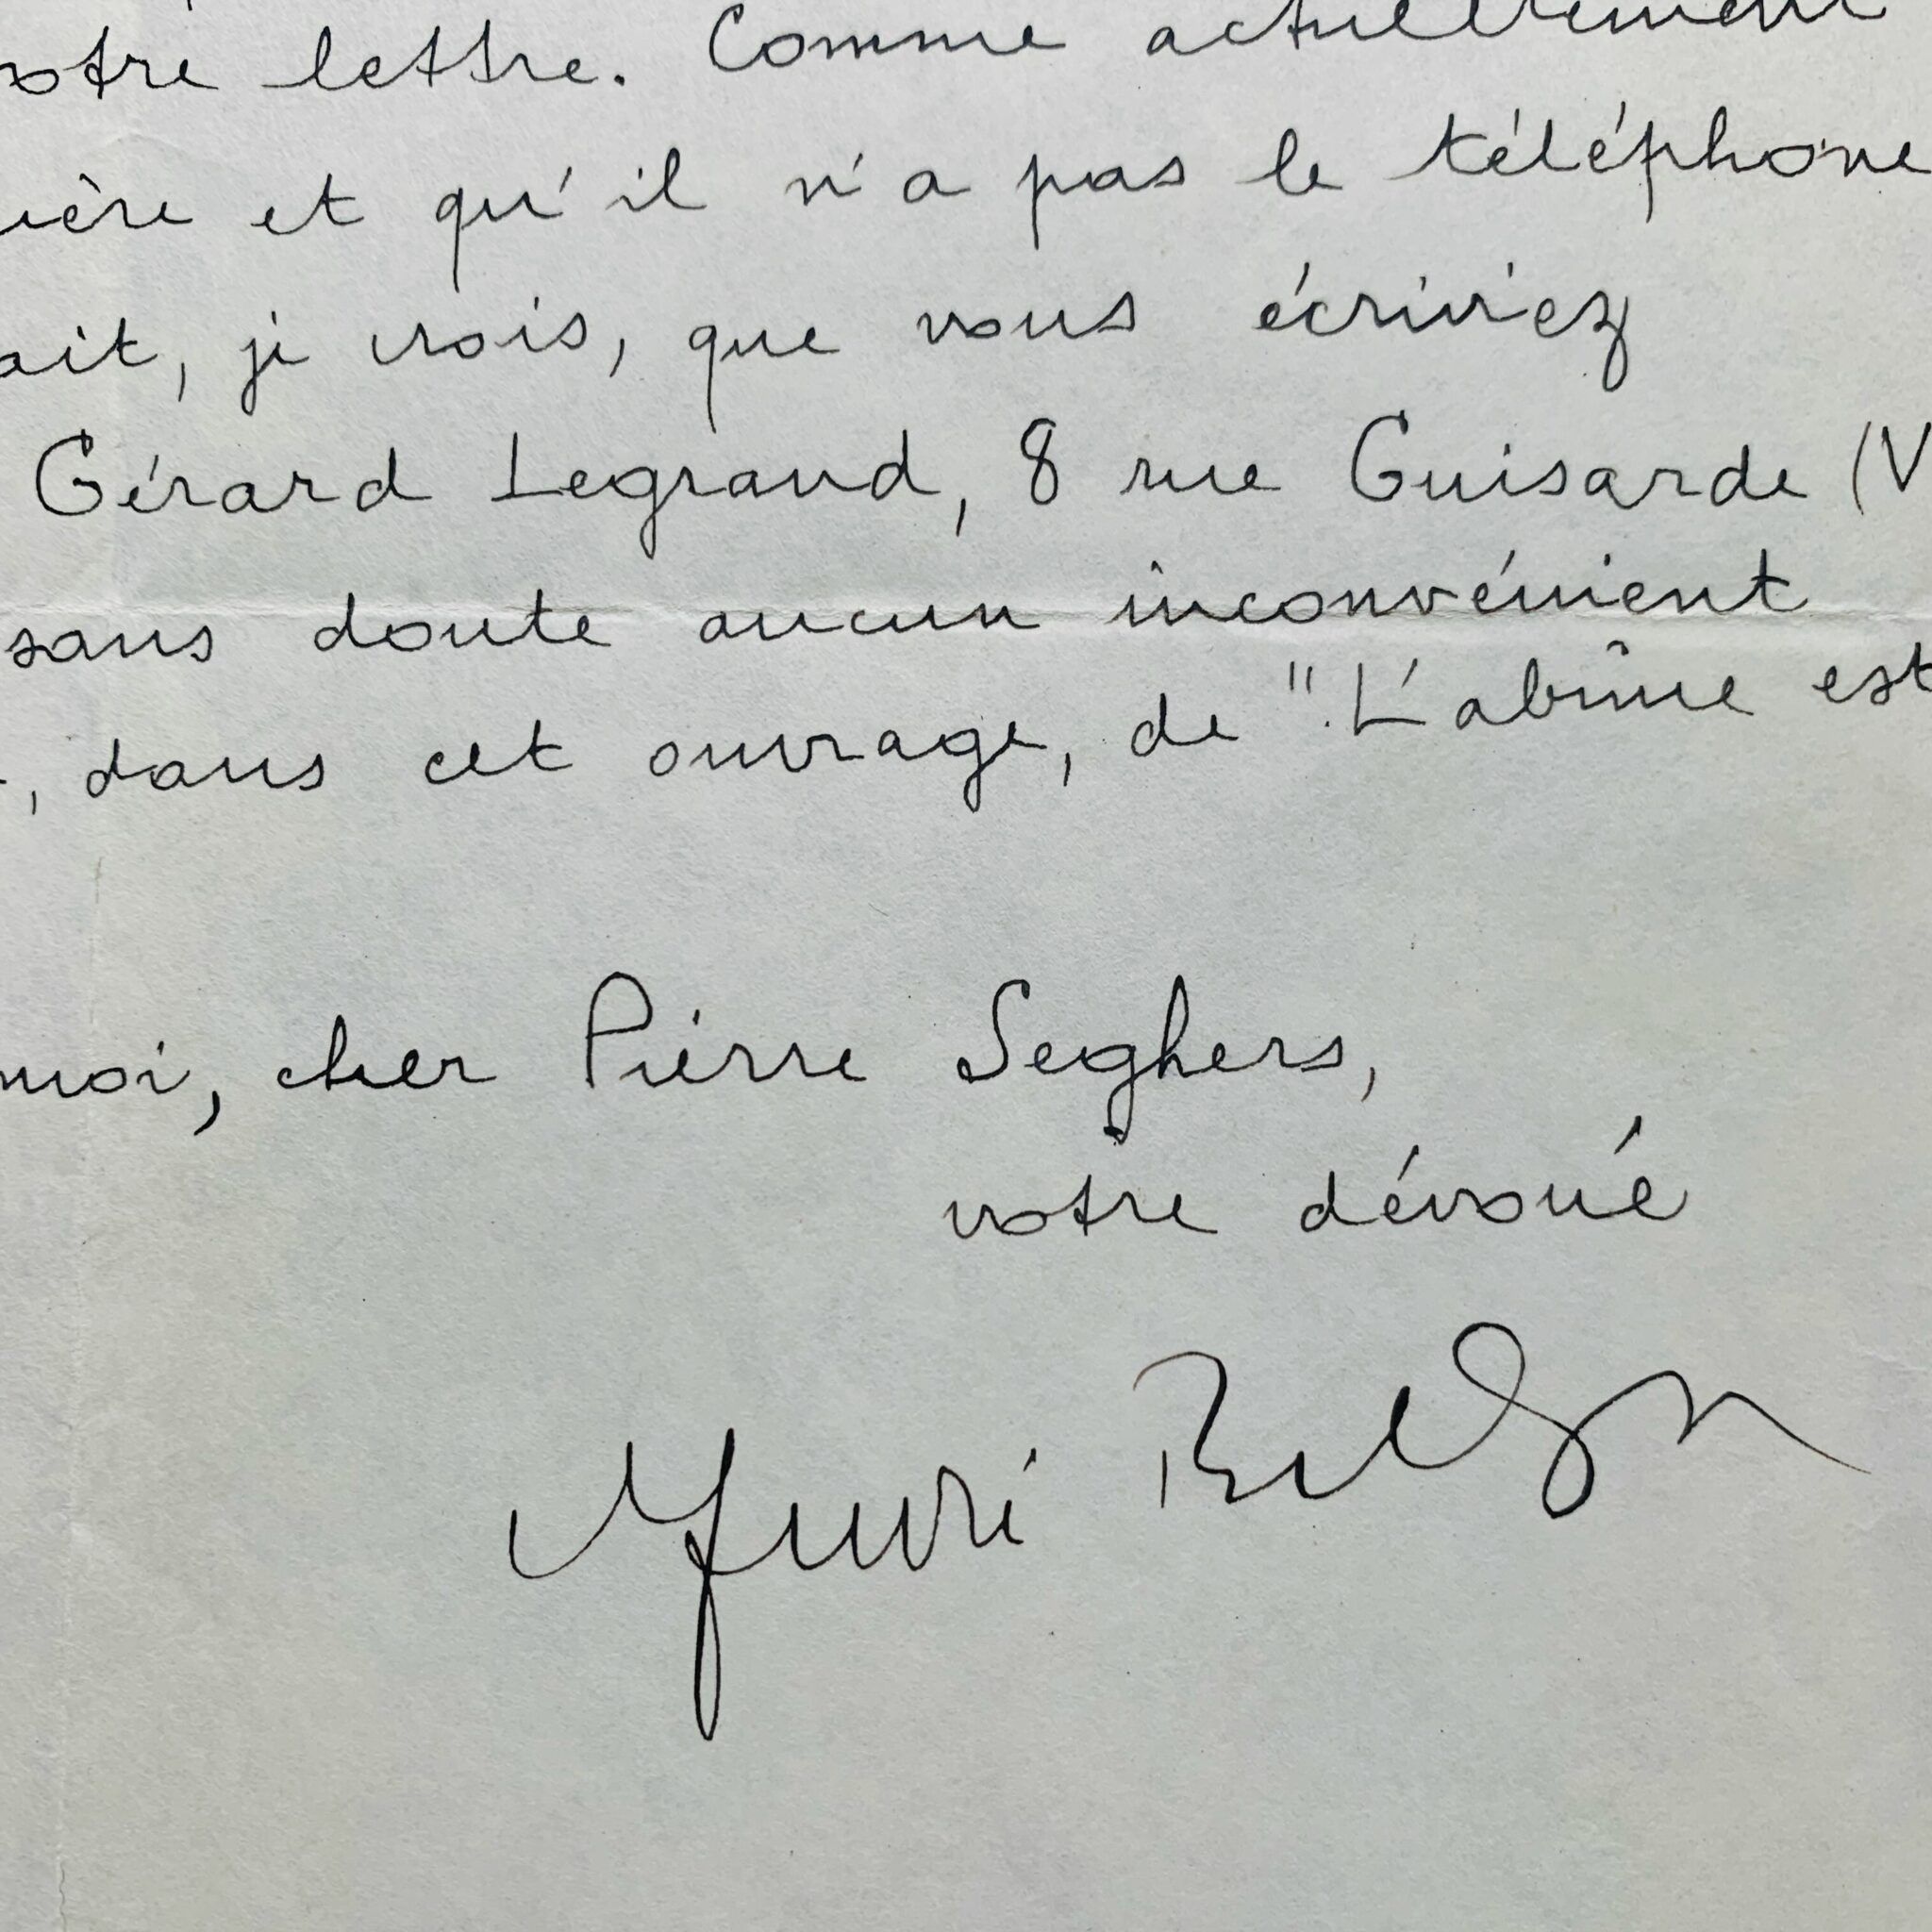 otre lettre. Comme actuellement
ière et qu'il n'a pas le téléphone
ait, je crois, que vous écriviez
Gérard Legrand, 8 rue Guisarde (V
sans doute aucun inconvénient
, dans cet ouvrage, de "L'abîme est
moi, cher Pierre Seghers,
votre dévoué
Henri